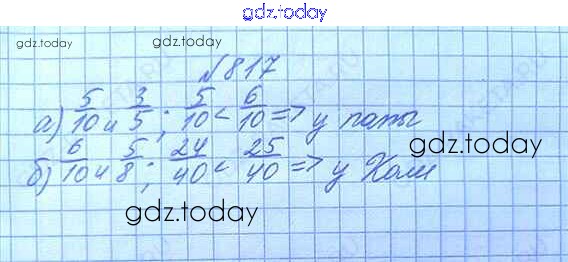 gdz.today
gdz.today
gdz.today
№817
а) 5/10 и 3/5; 5/10 < 6/10 => у папы
gdz.today
б) 6/10 и 5/8; 24/40 < 25/40 => у Коли
gdz.today
gdz.today